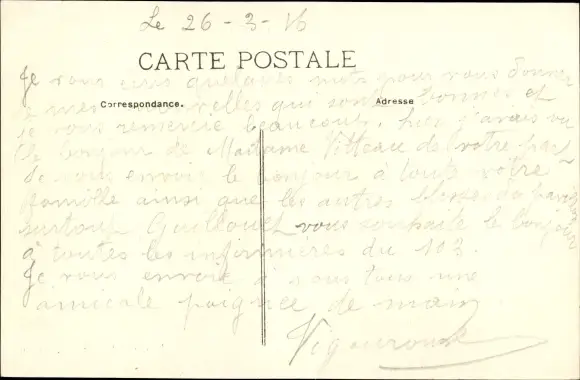 Le 26-3-16
CARTE POSTALE
Je vous écris quelques mots pour vous donner
de mes nouvelles qui sont bonnes et
Correspondance.
Adresse
je vous remercie beaucoup, hier j'avais vu
le bonjour de Madame Vitteau de votre part
de vous envoie le bonjour à toute votre
famille ainsi que les autres blessés du pavillon
surtout Guillouet vous souhaite le bonjour
à toutes les infirmières du 103
Je vous envoie à vous tous une
amicale poignée de main
Vigouroux